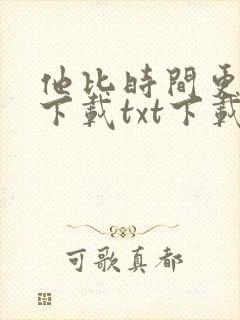 他比時間更
下載txt下載
可歌真都